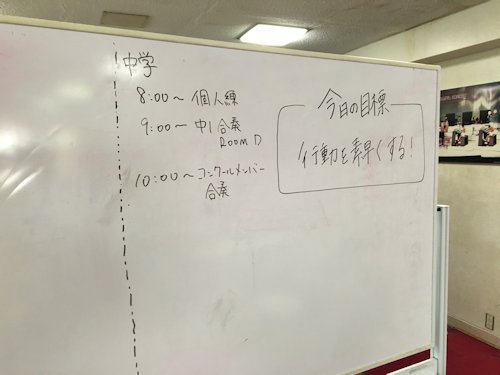 中学
8:00〜 個人練
9:00〜 中1合奏
ROOM D
10:00〜コンクールメンバー
合奏
今日の目標
行動を素早くする!